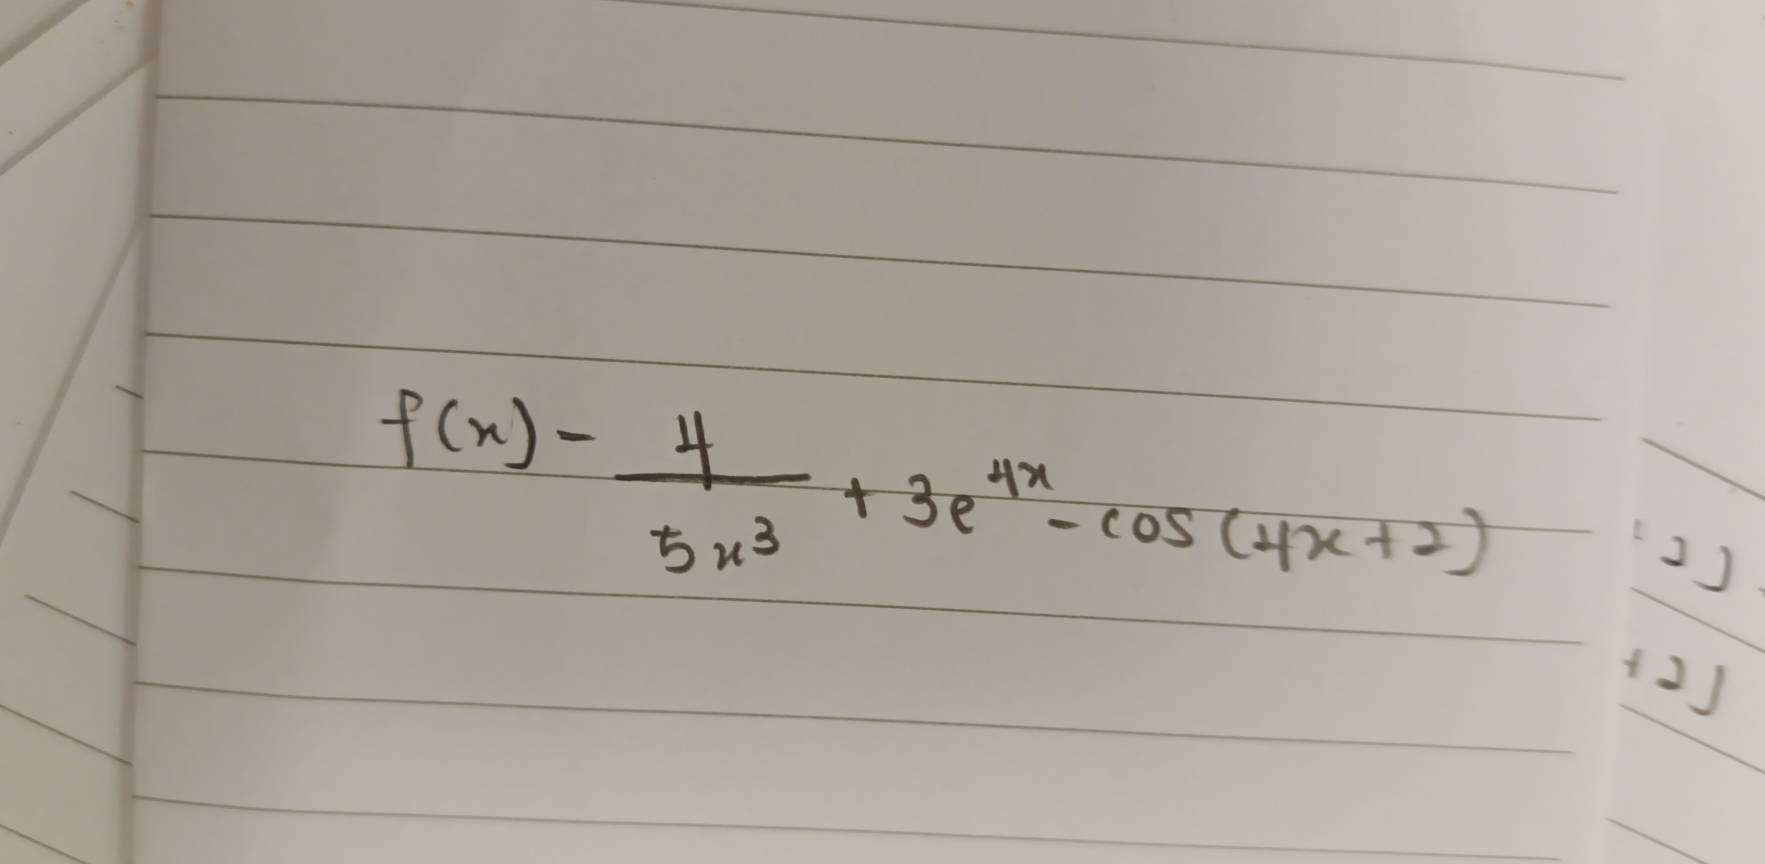 f(x) - 4/5x³ + 3e⁴ˣ - cos(4x+2)
2)
+2)